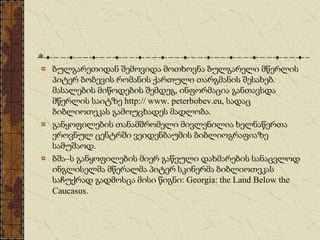 ბულგარეთიდან შემოვიდა მოთხოვნა ბულგარელი მწერლის
პიტერ ბობევის რომანის ქართული თარგმანის შესახებ.
მასალების მიწოდების შემდეგ, ინფორმაცია განთავსდა
მწერლის საიტზე http:// www. peterbobev.eu, სადაც
ბიბლიოთეკას გამოუცხადეს მადლობა.
განყოფილების თანამშრომელი მივლენილია ხელნაწერთა
ეროვნულ ცენტრში ვეიდენბაუმის ბიბლიოგრაფიაზე
სამუშაოდ.
ბშა–ს განყოფილების მიერ გაწეული დახმარების სანაცვლოდ
ინგლისელმა მწერალმა პიტერ სკინერმა ბიბლიოთეკას
საჩუქრად გადმოსცა მისი წიგნი: Georgia: the Land Below the
Caucasus.